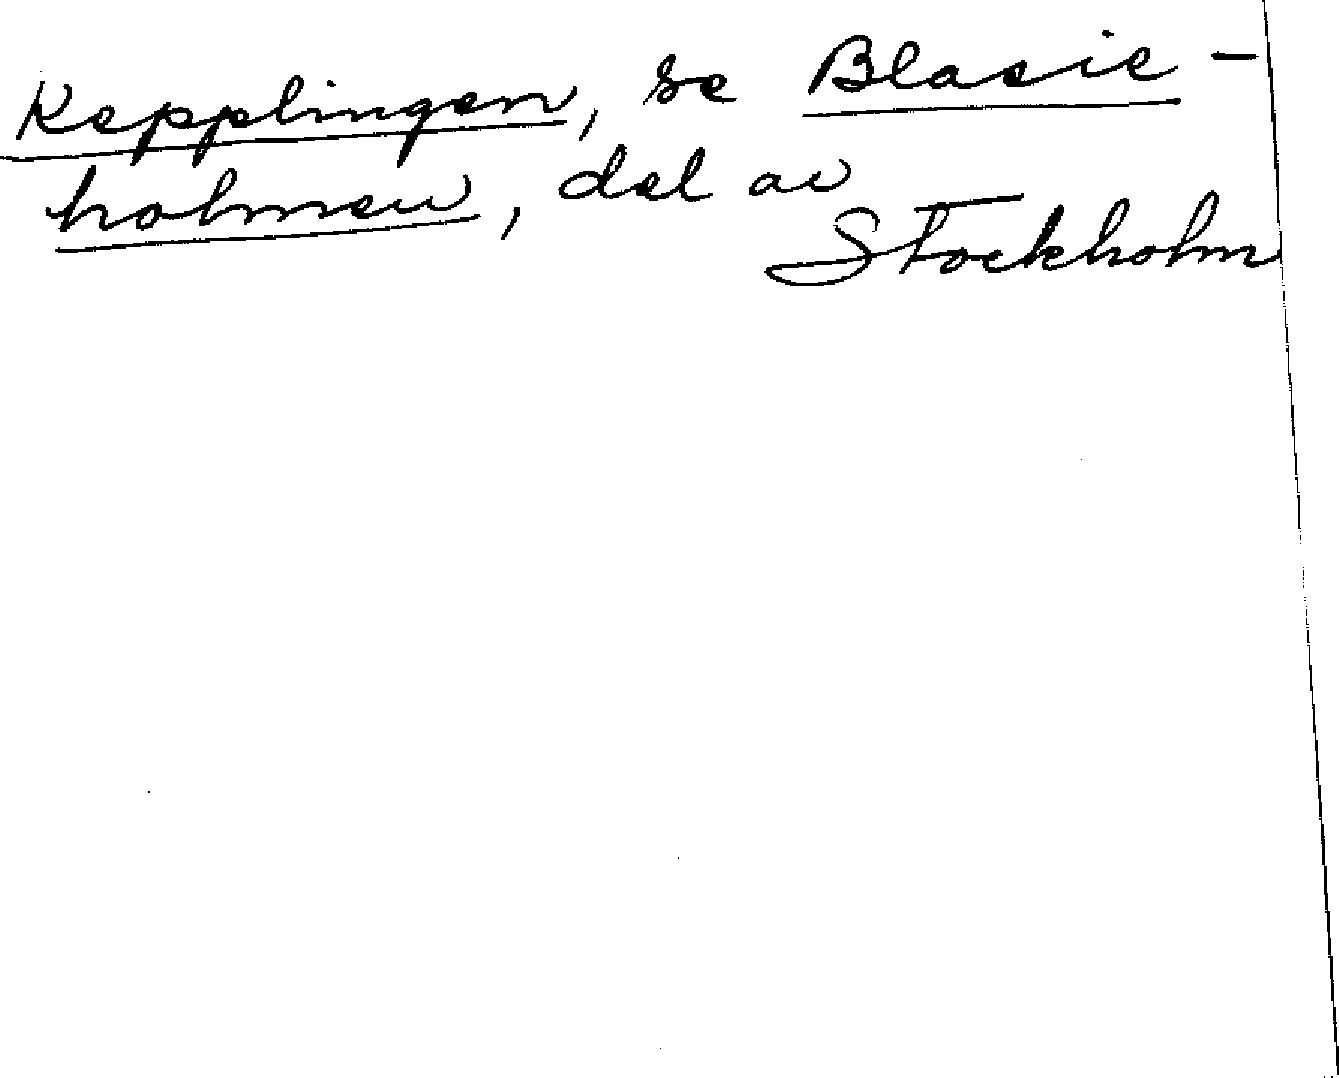 Kepplingen, se Blasie-
holmen, del av
Stockholm